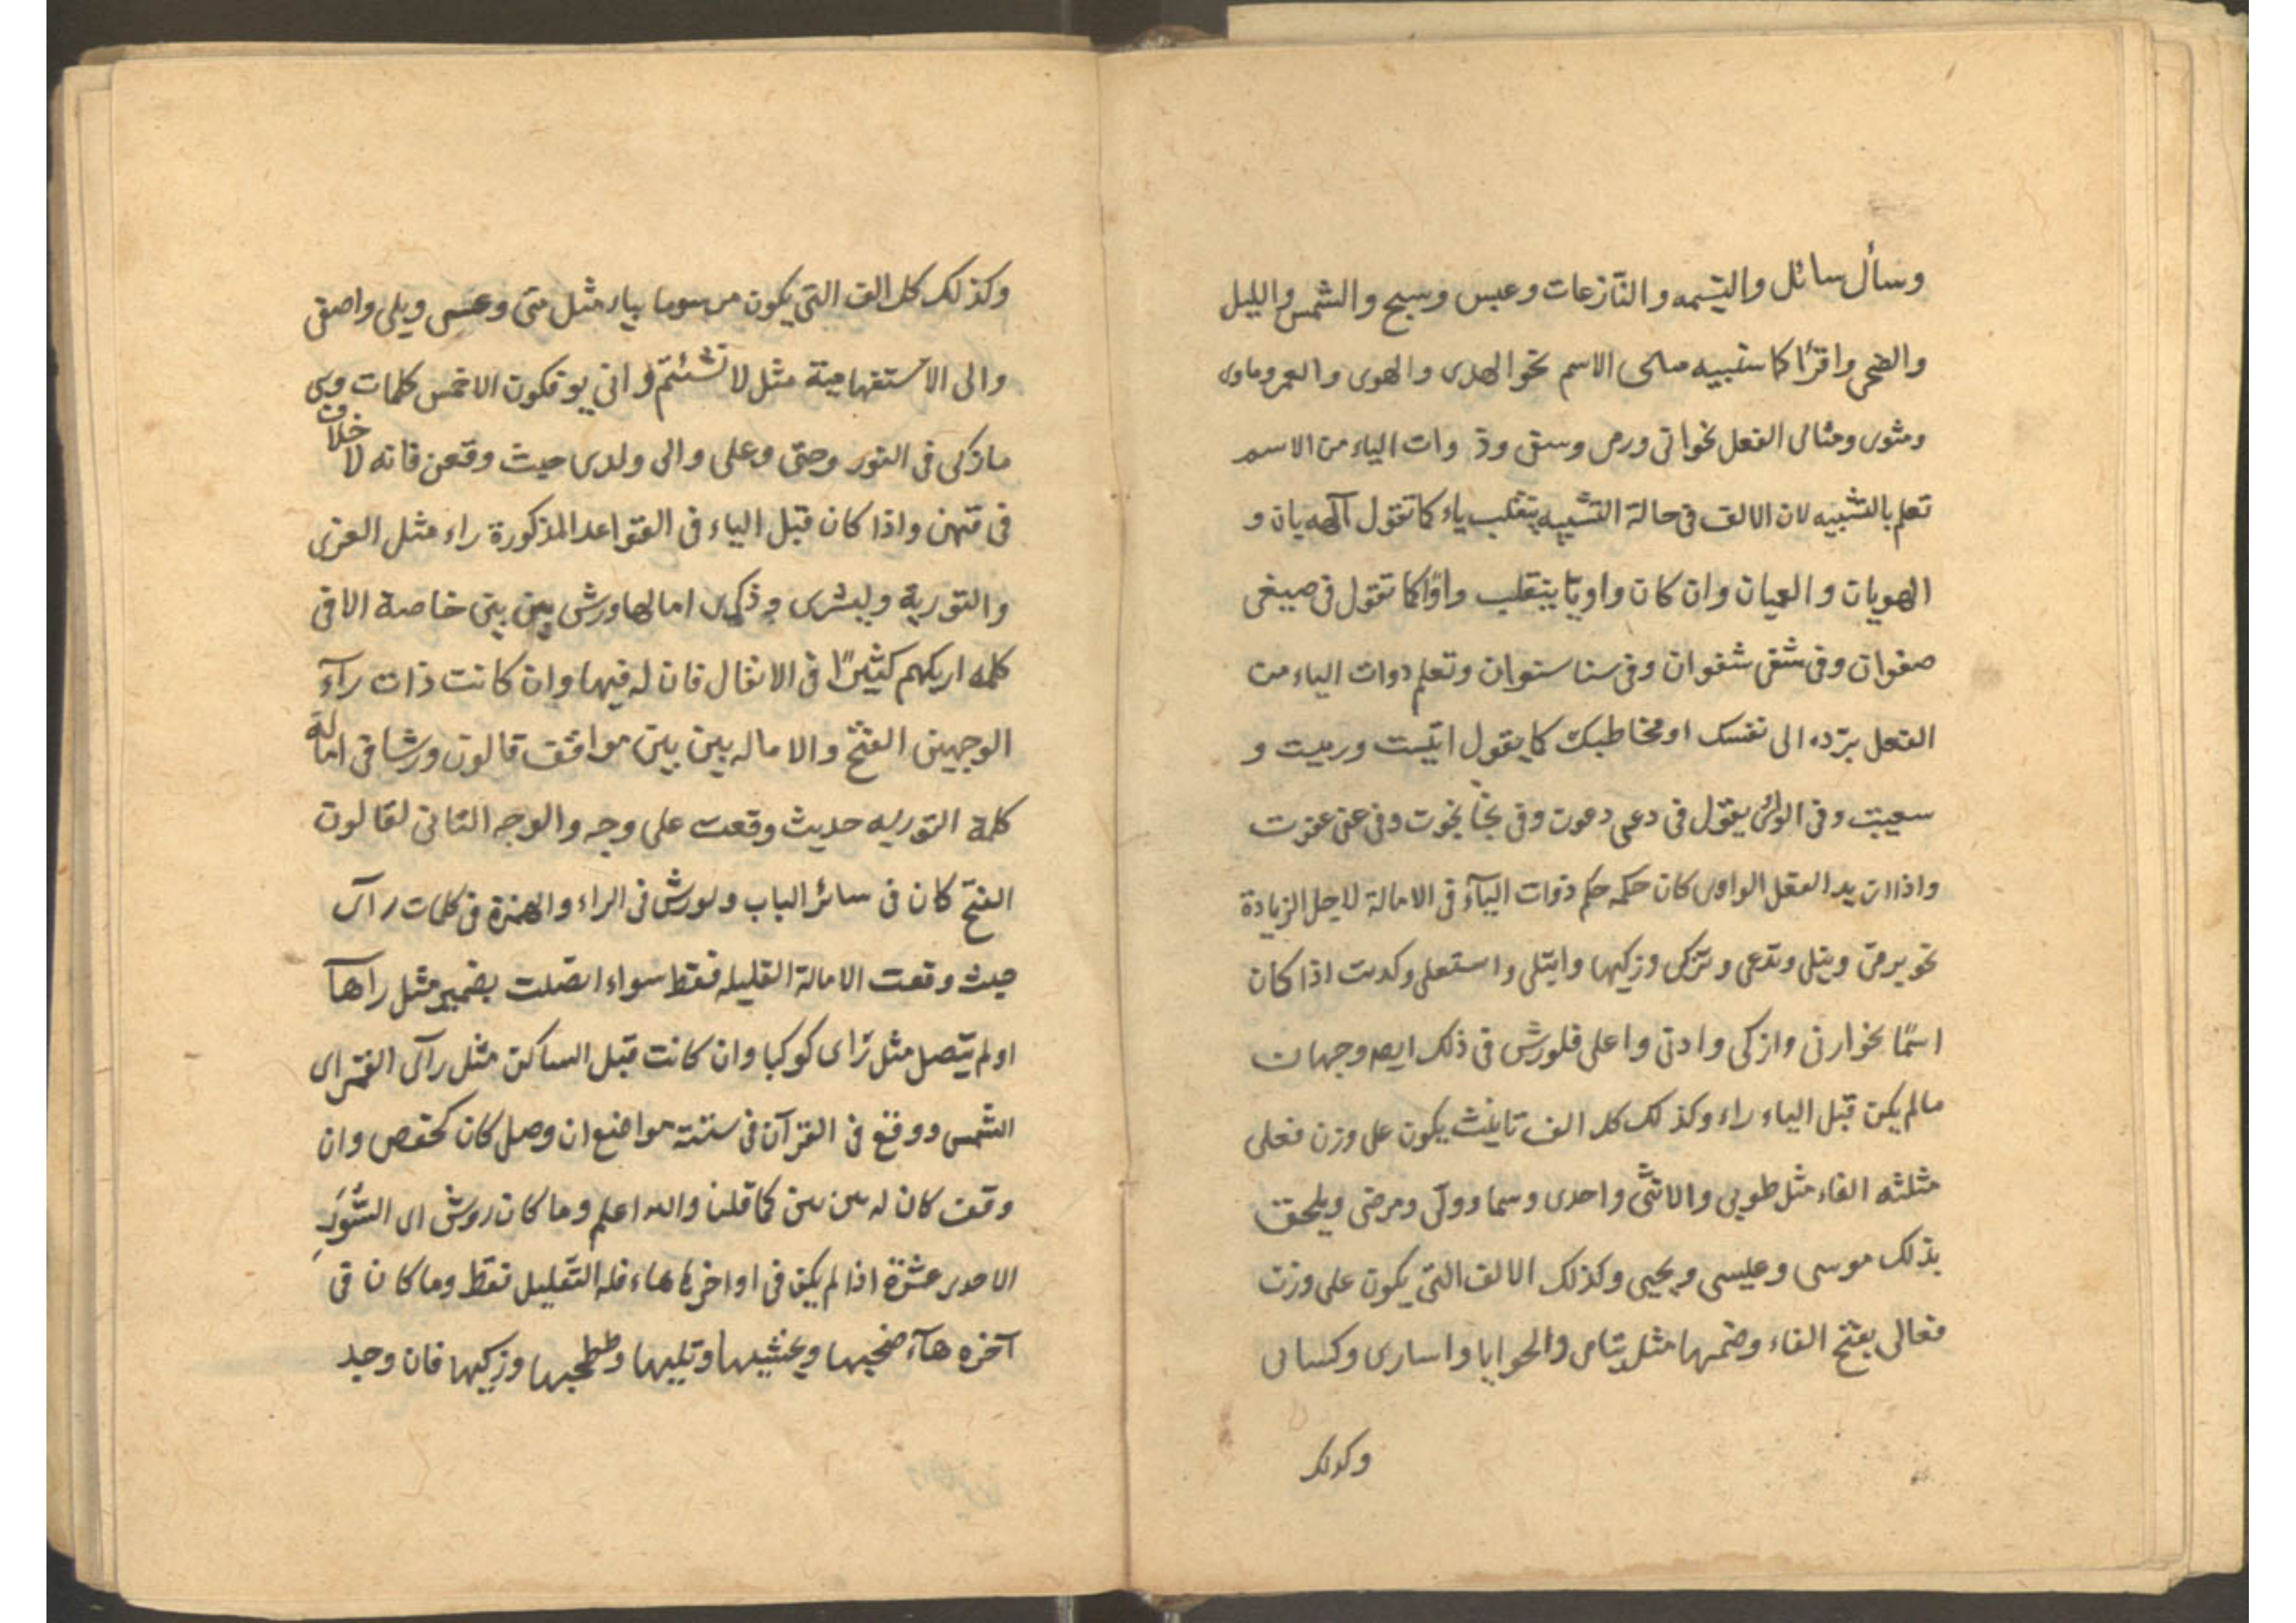 وسأل سائل والقيمه والنّازعات وعبس وسبح والشمس والليل
والضحى واقرأ كا ستبيه مثال الاسم نحو الهدى والهوى والعمى وماوى
ومثوى ومثال الفعل نحو اتى ورمى وسقى وذ وات الياء من الاسم
تعلم بالتشبيه لان الالف فى حالة التشبيه ينقلب ياء كما تقول آلهديان و
الهويان والعميان وان كان واويّا ينقلب واوًا كما تقول فى صيغى
صفوان وفى شفى شفوان وفى سنا سنوان وتعلم دوات الياء من
الفعل بردّه الى نفسك او مخاطبك كما يقول اتيت ورميت و
سعيت وفى الواى يقول فى دعى دعوت وفى نجا نجوت وفى عفى عفوت
واذا ازيد الفعل الواوى كان حكمه حكم ذوات اليآء فى الامالة لاجل الزيادة
نحو يرضى ويتلى وتدعى وتزكى وزكيها وابتلى واستعلى وكدىت اذا كان
اسمًا نحو ارنى وازكى وادنى واعلى فلورش فى ذلك ايصه وجهان
مالم يكن قبل الياء راء وكذلك كل الف تانيث يكون على وزن فعلى
مثلثه الفاء مثل طوبى والانثى واحدى وسيما ووتى ومرضى ويلحق
بذلك موسى وعيسى ويحيى وكذلك الالف التى يكون على وزن
فعالى بفتح الفاء وضمها مثل يتامى والحوايا واسارى وكسالى
وكذلك
وكذلك كل الف التى يكون مرسوما بياء مثل متى وعسى وبلى واصفى
والى الاستفهامية مثل لا شئتم و انى يوفكون الاخمس كلمات وهى
مازكى فى النور وحتى وعلى والى ولدى حيث وقعن فانه لا خلاف
فى فتهن واذا كان قبل الياء فى القواعد المذكورة راء مثل العزى
والتورية وليشرى وذكرى امالها ورش بين بين خاصة الا فى
كلمه اريكهم كثيرًا فى الانفال فان له فيها وان كانت ذات رآء
الوجهين الفتح والاماله بين بين موافق قالون ورشا فى امالة
كلمة التوريه حديث وقعت على وجه والوجه الثانى لقالون
الفتح كان فى سائر الباب ولورش فى الراء والهمزة فى كلمات رآى
حيث وقعت الامالة القليله فقط سواء اتصلت بضمير مثل رآهآ
اولم يتصل مثل رآى كوكبا وان كانت قبل الساكن مثل رآى القمر اى
الشمس ووقع فى القرآن فى ستته مواضع ان وصل كان كحفص وان
وقف كان له بين بين كما قلنا والله اعلم وما كان روش اى السُّوَر
الاحدى عشرة اذا لم يكن فى اواخرها هاء فله التقليل فقط وما كان فى
آخره هآء ضحيها ويغشيها وتليها وطحيها وزكيها فان وجد